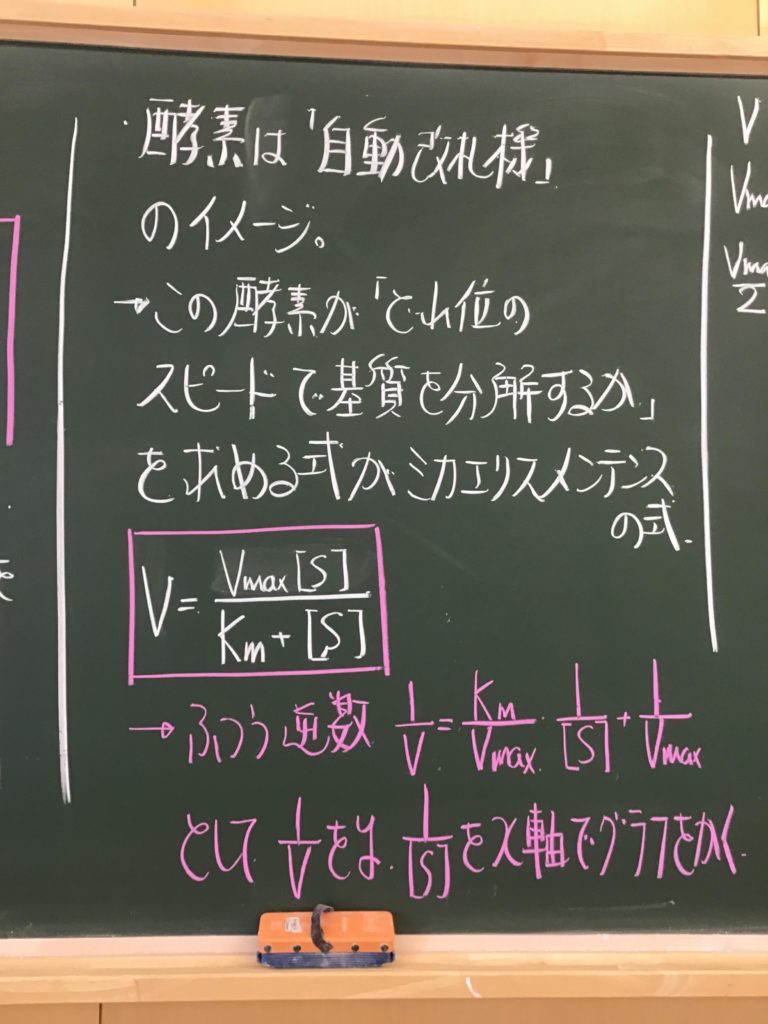 ・酵素は「自動改札様」
のイメージ。
→この酵素が「どれ位の
スピードで基質を分解するか」
を求める式がミカエリスメンテンス
の式.
V = Vmax[S] / Km + [S]
→ふつう逆数 1/V = Km/Vmax・1/[S] + 1/Vmax
として 1/Vをy. 1/[S]をx軸でグラフをかく.
V
Vma
Vma/2